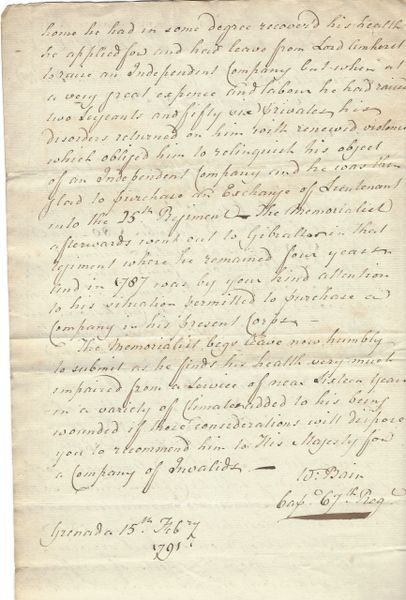 home he had in some degree recover'd his health
he applied for and had leave from Lord Amherst
to raise an Independent Company but when at
a very great expence and labour he had raised
two Serjeants and fifty six privates his
disorders returned on him with renewed violence
which obliged him to relinquish his object
of an Independent Company and he was then
glad to purchase an Exchange of Lieutenant
into the 25th Regiment – The Memorialist
afterwards went out to Gibraltar in that
regiment where he remained four years
and in 1787 was by your kind attention
to his situation permitted to purchase a
Company in his present Corps –
The Memorialist begs leave now humbly
to submit as he finds his health very much
impaired from a service of near Sixteen Years
in a variety of Climates added to his being
wounded if those considerations will dispose
you to recommend him to His Majesty for
a Company of Invalids –
Wm Bain
Capn 67th Regt
Grenada 15th Febry
1791